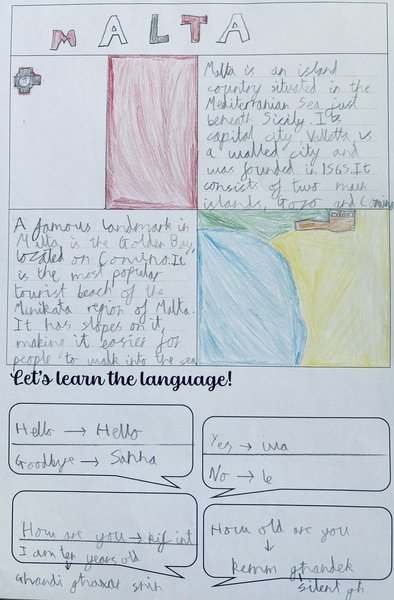 MALTA
Malta is an island
country situated in the
Mediterranean Sea just
beneath Sicily. Its
capital city Valletta is
a walled city and
was founded in 1565. It
consists of two main
islands, Gozo and Comino
A famous landmark in
Malta is the Golden Bay,
located on Comino. It
is the most popular
tourist beach of the
Manikata region of Malta.
It has slopes on it,
making it easier for
people to walk into the sea
Let's learn the language!
Hello → Hello
Goodbye → Sahha
Yes → iwa
No → le
How are you → kif int
I am ten years old
↓
Ghandi ghaxar snin
How old are you
↓
kemm ghandek
silent gh